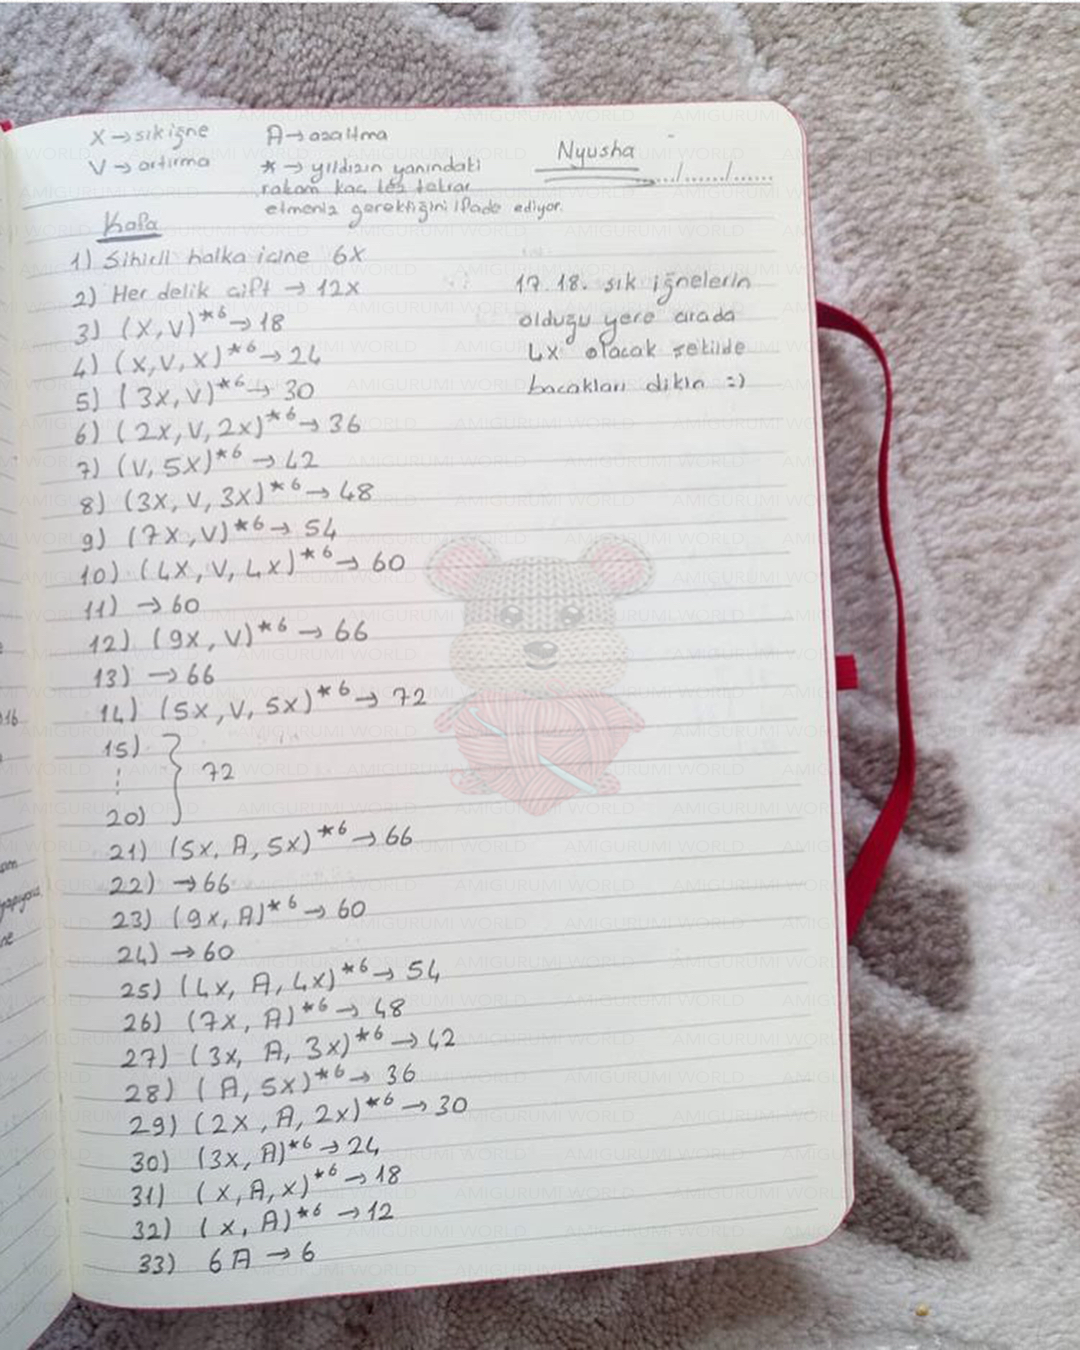 X → sık iğne
V → artırma
A → azaltma
* → yıldızın yanındaki
rakam kaç kez tekrar
etmeniz gerektiğini ifade ediyor.
Nyusha
...../....../......
Kafa
1) Sihirli halka içine 6X
2) Her delik çift → 12x
3) (X, V)*6 → 18
4) (X, V, X)*6 → 24
5) (3X, V)*6 → 30
6) (2X, V, 2X)*6 → 36
7) (V, 5X)*6 → 42
8) (3X, V, 3X)*6 → 48
9) (7X, V)*6 → 54
10) (4X, V, 4X)*6 → 60
11) → 60
12) (9X, V)*6 → 66
13) → 66
14) (5X, V, 5X)*6 → 72
15)
20) } 72
21) (5X, A, 5X)*6 → 66
22) → 66
23) (9X, A)*6 → 60
24) → 60
25) (4X, A, 4X)*6 → 54
26) (7X, A)*6 → 48
27) (3X, A, 3X)*6 → 42
28) (A, 5X)*6 → 36
29) (2X, A, 2X)*6 → 30
30) (3X, A)*6 → 24
31) (X, A, X)*6 → 18
32) (X, A)*6 → 12
33) 6A → 6
17. 18. sık iğnelerin
olduğu yere arada
4X olacak şekilde
bacakları dikin :)
AMIGURUMI WORLD